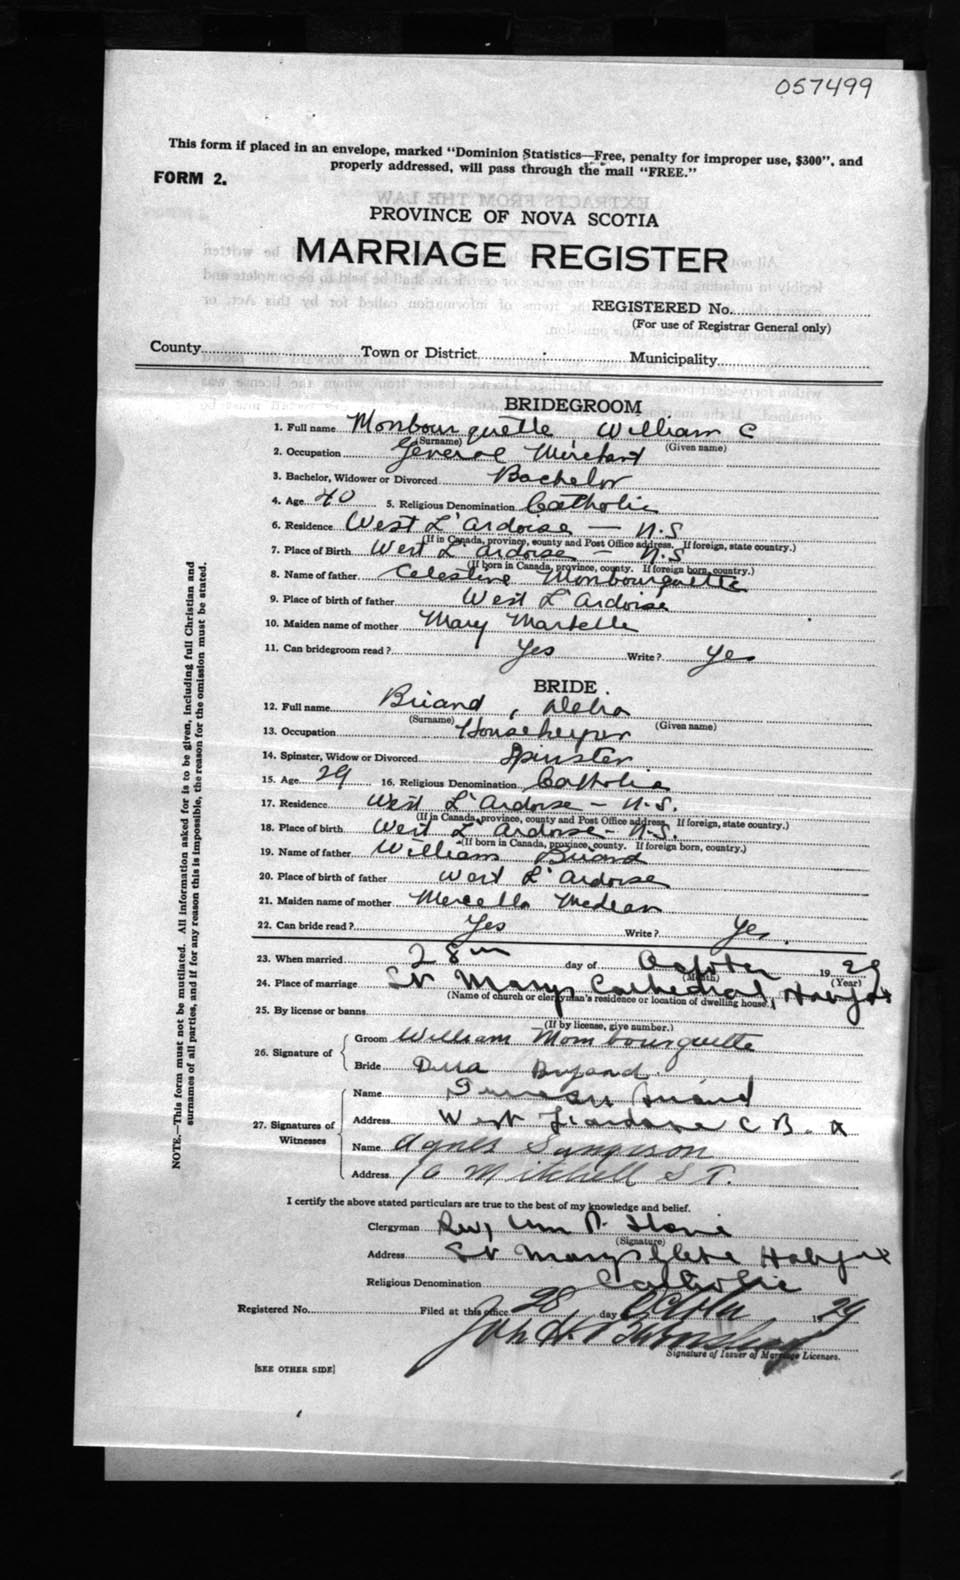 057499
This form if placed in an envelope, marked "Dominion Statistics—Free, penalty for improper use, $300", and
properly addressed, will pass through the mail "FREE."
FORM 2.
PROVINCE OF NOVA SCOTIA
MARRIAGE REGISTER
REGISTERED No.
(For use of Registrar General only)
County Town or District Municipality
BRIDEGROOM
1. Full name Mombourquette, William C
(Surname) (Given name)
2. Occupation General Merchant
3. Bachelor, Widower or Divorced Bachelor
4. Age 40 5. Religious Denomination Catholic
6. Residence West L'Ardoise — N.S
(If in Canada, province, county and Post Office address. If foreign, state country.)
7. Place of Birth West L'Ardoise — N.S
(If born in Canada, province, county. If foreign born, country.)
8. Name of father Celestine Monbourquette
9. Place of birth of father West L'Ardoise
10. Maiden name of mother Mary Martelle
11. Can bridegroom read? Yes Write? Yes
BRIDE.
12. Full name Briand, Della
(Surname) (Given name)
13. Occupation Housekeeper
14. Spinster, Widow or Divorced Spinster
15. Age 29 16. Religious Denomination Catholic
17. Residence West L'Ardoise — N.S.
(If in Canada, province, county and Post Office address. If foreign, state country.)
18. Place of birth West L'Ardoise — N.S.
(If born in Canada, province, county. If foreign born, country.)
19. Name of father William Briand
20. Place of birth of father West L'Ardoise
21. Maiden name of mother
22. Can bride read? Yes Write? Yes.
23. When married 28th day of October 1929
(Month) (Year)
24. Place of marriage St Marys Cathedral Halifax
(Name of church or clergyman's residence or location of dwelling house.)
25. By license or banns
(If by license, give number.)
26. Signature of Groom William Mombourquette
Bride Della Bryand.
27. Signatures of Witnesses
Name Briand
Address West L'ardoise C B.
Name Agnes Sampson
Address 76 Mitchell ST.
I certify the above stated particulars are true to the best of my knowledge and belief.
Clergyman Rev, Wm
(Signature)
Address St Marys Glebe Halifax
Religious Denomination Catholic
Registered No. Filed at this office 28 day October 1929
John H.
Signature of Issuer of Marriage Licenses.
[SEE OTHER SIDE]
NOTE.—This form must not be mutilated. All information asked for is to be given, including full Christian and
surnames of all parties, and if for any reason this is impossible, the reason for the omission must be stated.